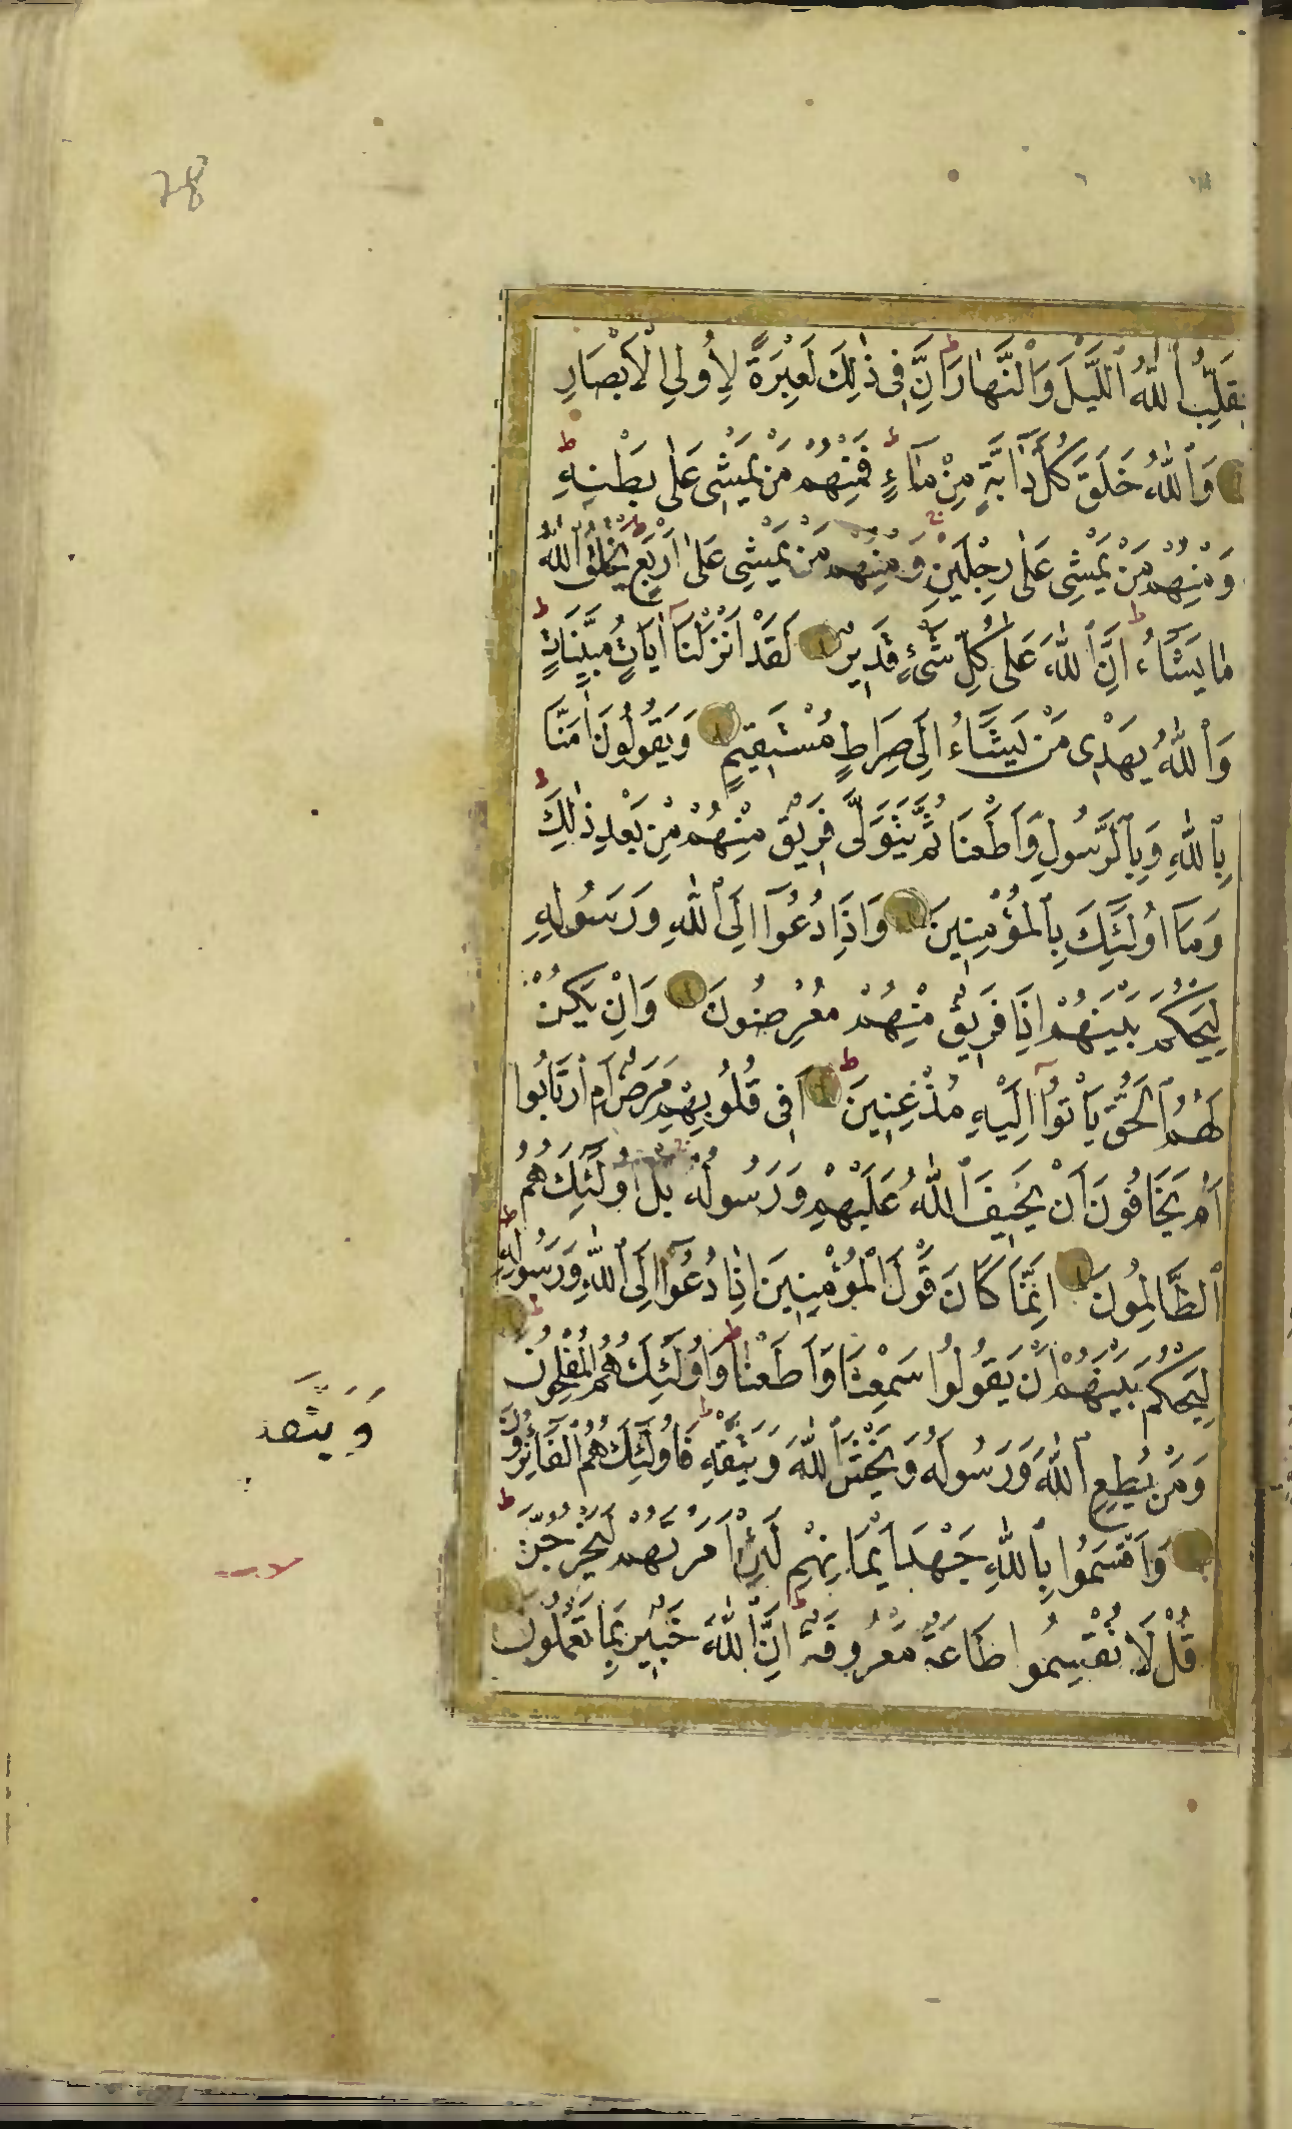 يُقَلِّبُ ٱللّٰهُ ٱللَّيْلَ وَالنَّهَارَ اِنَّ فِى ذٰلِكَ لَعِبْرَةً لِأُولِى الْاَبْصَارِ
وَٱللّٰهُ خَلَقَ كُلَّ دَآبَّةٍ مِنْ مَآءٍ فَمِنْهُمْ مَنْ يَمْشِى عَلٰى بَطْنِهِ
وَمِنْهُمْ مَنْ يَمْشِى عَلٰى رِجْلَيْنِ وَمِنْهُمْ مَنْ يَمْشِى عَلٰى اَرْبَعٍ يَخْلُقُ ٱللّٰهُ
مَا يَشَآءُ اِنَّ ٱللّٰهَ عَلٰى كُلِّ شَىْءٍ قَدِيرٌ لَقَدْ اَنْزَلْنَآ اٰيَاتٍ مُبَيِّنَاتٍ
وَٱللّٰهُ يَهْدِى مَنْ يَشَآءُ اِلٰى صِرَاطٍ مُسْتَقِيمٍ وَيَقُولُونَ اٰمَنَّا
بِٱللّٰهِ وَبِٱلرَّسُولِ وَاَطَعْنَا ثُمَّ يَتَوَلَّى فَرِيْقٌ مِنْهُمْ مِنْ بَعْدِ ذٰلِكَ
وَمَآ اُولٰٓئِكَ بِٱلْمُؤْمِنِينَ وَاِذَا دُعُوٓا اِلَى ٱللّٰهِ وَرَسُولِهِ
لِيَحْكُمَ بَيْنَهُمْ اِذَا فَرِيقٌ مِنْهُمْ مُعْرِضُونَ وَاِنْ يَكُنْ
لَهُمُ ٱلْحَقُّ يَاْتُوٓا اِلَيْهِ مُذْعِنِينَ اَفِى قُلُوبِهِمْ مَرَضٌ اَمِ ارْتَابُوا
اَمْ يَخَافُونَ اَنْ يَحِيفَ ٱللّٰهُ عَلَيْهِمْ وَرَسُولُهُ بَلْ اُولٰٓئِكَ هُمُ
ٱلظَّالِمُونَ اِنَّمَا كَانَ قَوْلَ الْمُؤْمِنِينَ اِذَا دُعُوٓا اِلَى ٱللّٰهِ وَرَسُولِهِ
لِيَحْكُمَ بَيْنَهُمْ اَنْ يَقُولُوا سَمِعْنَا وَاَطَعْنَا وَاُولٰٓئِكَ هُمُ الْمُفْلِحُونَ
وَمَنْ يُطِعِ ٱللّٰهَ وَرَسُولَهُ وَيَخْشَ ٱللّٰهَ وَيَتَّقْهِ فَاُولٰٓئِكَ هُمُ ٱلْفَآئِزُونَ
وَاَقْسَمُوا بِٱللّٰهِ جَهْدَ اَيْمَانِهِمْ لَئِنْ اَمَرْتَهُمْ لَيَخْرُجُنَّ
قُلْ لَا تُقْسِمُوا طَاعَةٌ مَعْرُوفَةٌ اِنَّ ٱللّٰهَ خَبِيرٌ بِمَا تَعْمَلُونَ